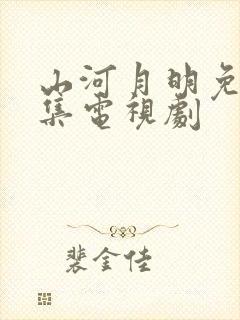 山河月明免
集電視劇
裴金佳